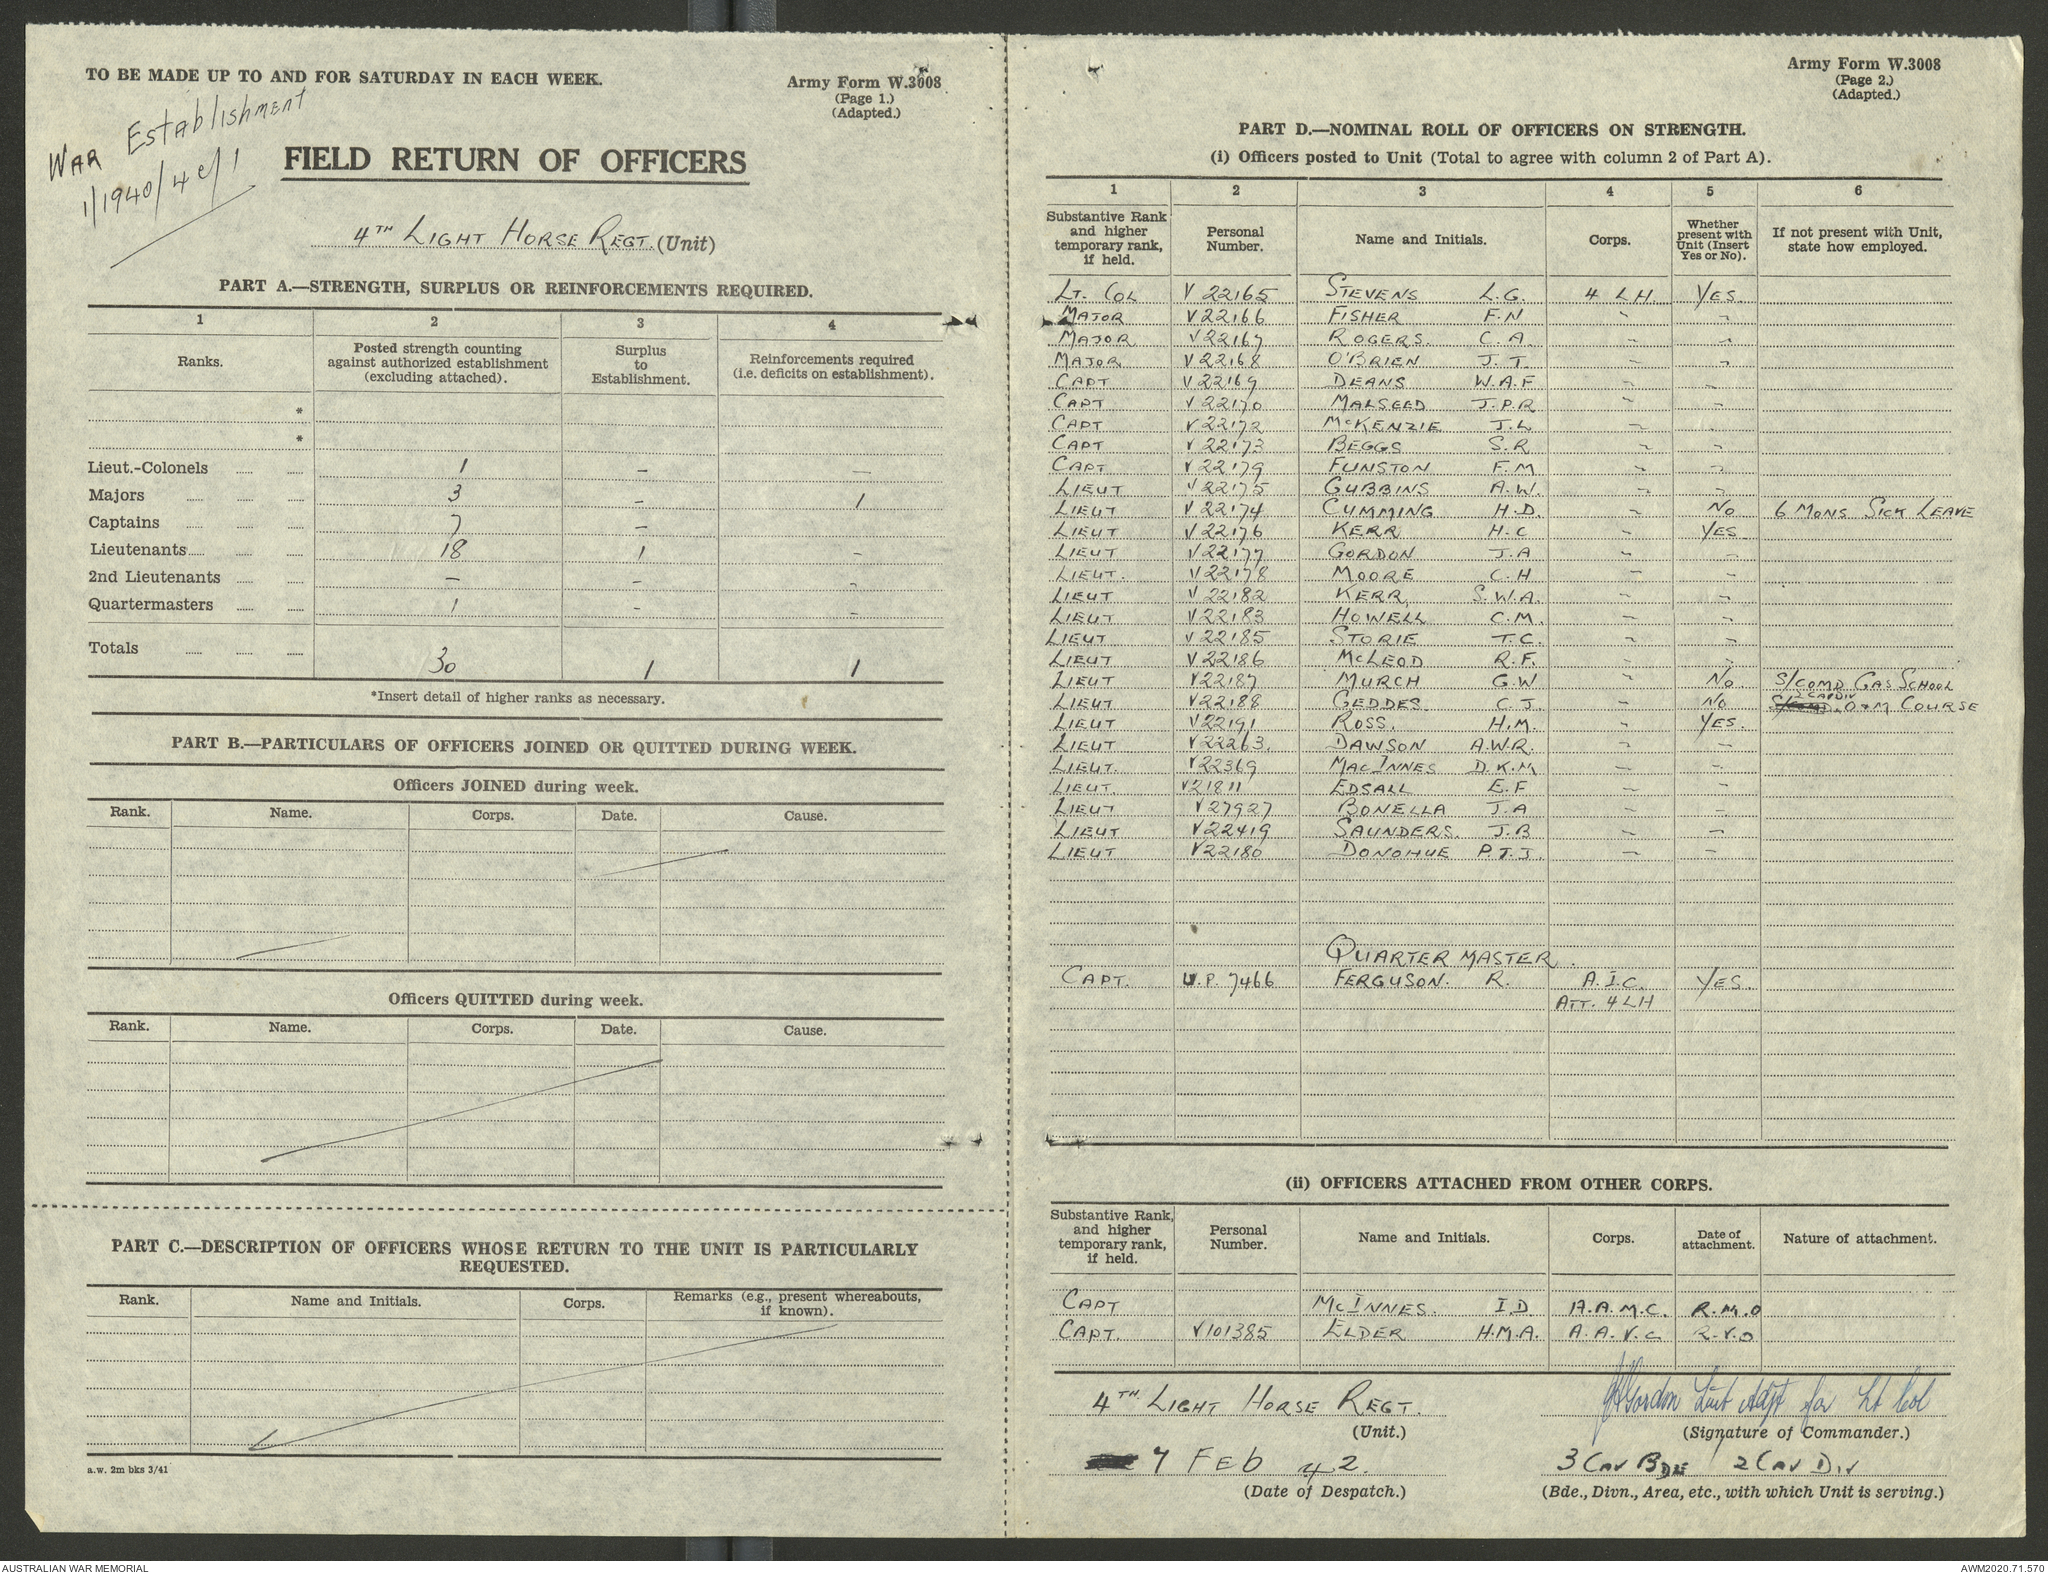 TO BE MADE UP TO AND FOR SATURDAY IN EACH WEEK.
Army Form W.3008
(Page 1.)
(Adapted.)
WAR Establishment
1/1940/4c/1
FIELD RETURN OF OFFICERS
4TH LIGHT HORSE REGT. (Unit)
PART A.—STRENGTH, SURPLUS OR REINFORCEMENTS REQUIRED.
1 2 3 4
Ranks. Posted strength counting against authorized establishment (excluding attached). Surplus to Establishment. Reinforcements required (i.e. deficits on establishment).
*
*
Lieut.-Colonels 1 – –
Majors 3 – 1
Captains 7 –
Lieutenants 18 1 –
2nd Lieutenants – – –
Quartermasters 1 – –
Totals 30 1 1
*Insert detail of higher ranks as necessary.
PART B.—PARTICULARS OF OFFICERS JOINED OR QUITTED DURING WEEK.
Officers JOINED during week.
Rank. Name. Corps. Date. Cause.
Officers QUITTED during week.
Rank. Name. Corps. Date. Cause.
PART C.—DESCRIPTION OF OFFICERS WHOSE RETURN TO THE UNIT IS PARTICULARLY
REQUESTED.
Rank. Name and Initials. Corps. Remarks (e.g., present whereabouts, if known).
a.w. 2m bks 3/41
Army Form W.3008
(Page 2.)
(Adapted.)
PART D.—NOMINAL ROLL OF OFFICERS ON STRENGTH.
(i) Officers posted to Unit (Total to agree with column 2 of Part A).
1 2 3 4 5 6
Substantive Rank and higher temporary rank, if held. Personal Number. Name and Initials. Corps. Whether present with Unit (Insert Yes or No). If not present with Unit, state how employed.
LT. COL V 22165 STEVENS L.G. 4 LH YES
MAJOR V 22166 FISHER F.N ~ ~
MAJOR V 22167 ROGERS. C.A. ~ ~
MAJOR V 22168 O'BRIEN J.T. ~ ~
CAPT V 22169 DEANS W.A.F ~ ~
CAPT V 22170 MALSEED J.P.R ~ ~
CAPT V 22172 McKENZIE J.L ~ ~
CAPT V 22173 BEGGS S.R ~ ~
CAPT V 22179 FUNSTON F.M ~ ~
LIEUT V 22175 GUBBINS A.W. ~ ~
LIEUT V 22174 CUMMING H.D. ~ NO 6 MONS SICK LEAVE
LIEUT V 22176 KERR H.C ~ YES
LIEUT V 22177 GORDON J.A ~ ~
LIEUT. V 22178 MOORE C.H ~ ~
LIEUT V 22182 KERR S.W.A. ~ ~
LIEUT V 22183 HOWELL C.M. ~ ~
LIEUT V 22185 STORIE T.C. ~ ~
LIEUT V 22186 McLEOD R.F. ~ ~
LIEUT V 22187 MURCH G.W ~ NO. S/COMD GAS SCHOOL
LIEUT V 22188 GEDDES C.J. ~ NO 2 CAV DIV D&M COURSE
LIEUT V 22191 ROSS. H.M. ~ YES.
LIEUT V 22263. DAWSON A.W.R. ~ ~
LIEUT. V 22369 MACINNES D.K.M ~ ~
LIEUT V 21811 EDSALL E.F ~ ~
LIEUT V 27927 BONELLA J.A ~ ~
LIEUT V 22419 SAUNDERS. J.B ~ ~
LIEUT V 22180 DONOHUE P.T.J. ~ ~
QUARTER MASTER.
CAPT. U.P. 7466 FERGUSON. R. A.I.C. YES.
ATT. 4 LH
(ii) OFFICERS ATTACHED FROM OTHER CORPS.
Substantive Rank, and higher temporary rank, if held. Personal Number. Name and Initials. Corps. Date of attachment. Nature of attachment.
CAPT McINNES. I.D A.A.M.C. R.M.O
CAPT. V101385 ELDER H.M.A. A.A.V.C R.V.O
4TH LIGHT HORSE REGT. (Unit.)
JAGordon Lieut Adjt for Lt Col
(Signature of Commander.)
7 FEB 42.
(Date of Despatch.)
3 CAV BDE 2 CAV DIV
(Bde., Divn., Area, etc., with which Unit is serving.)
AUSTRALIAN WAR MEMORIAL
AWM2020.71.570